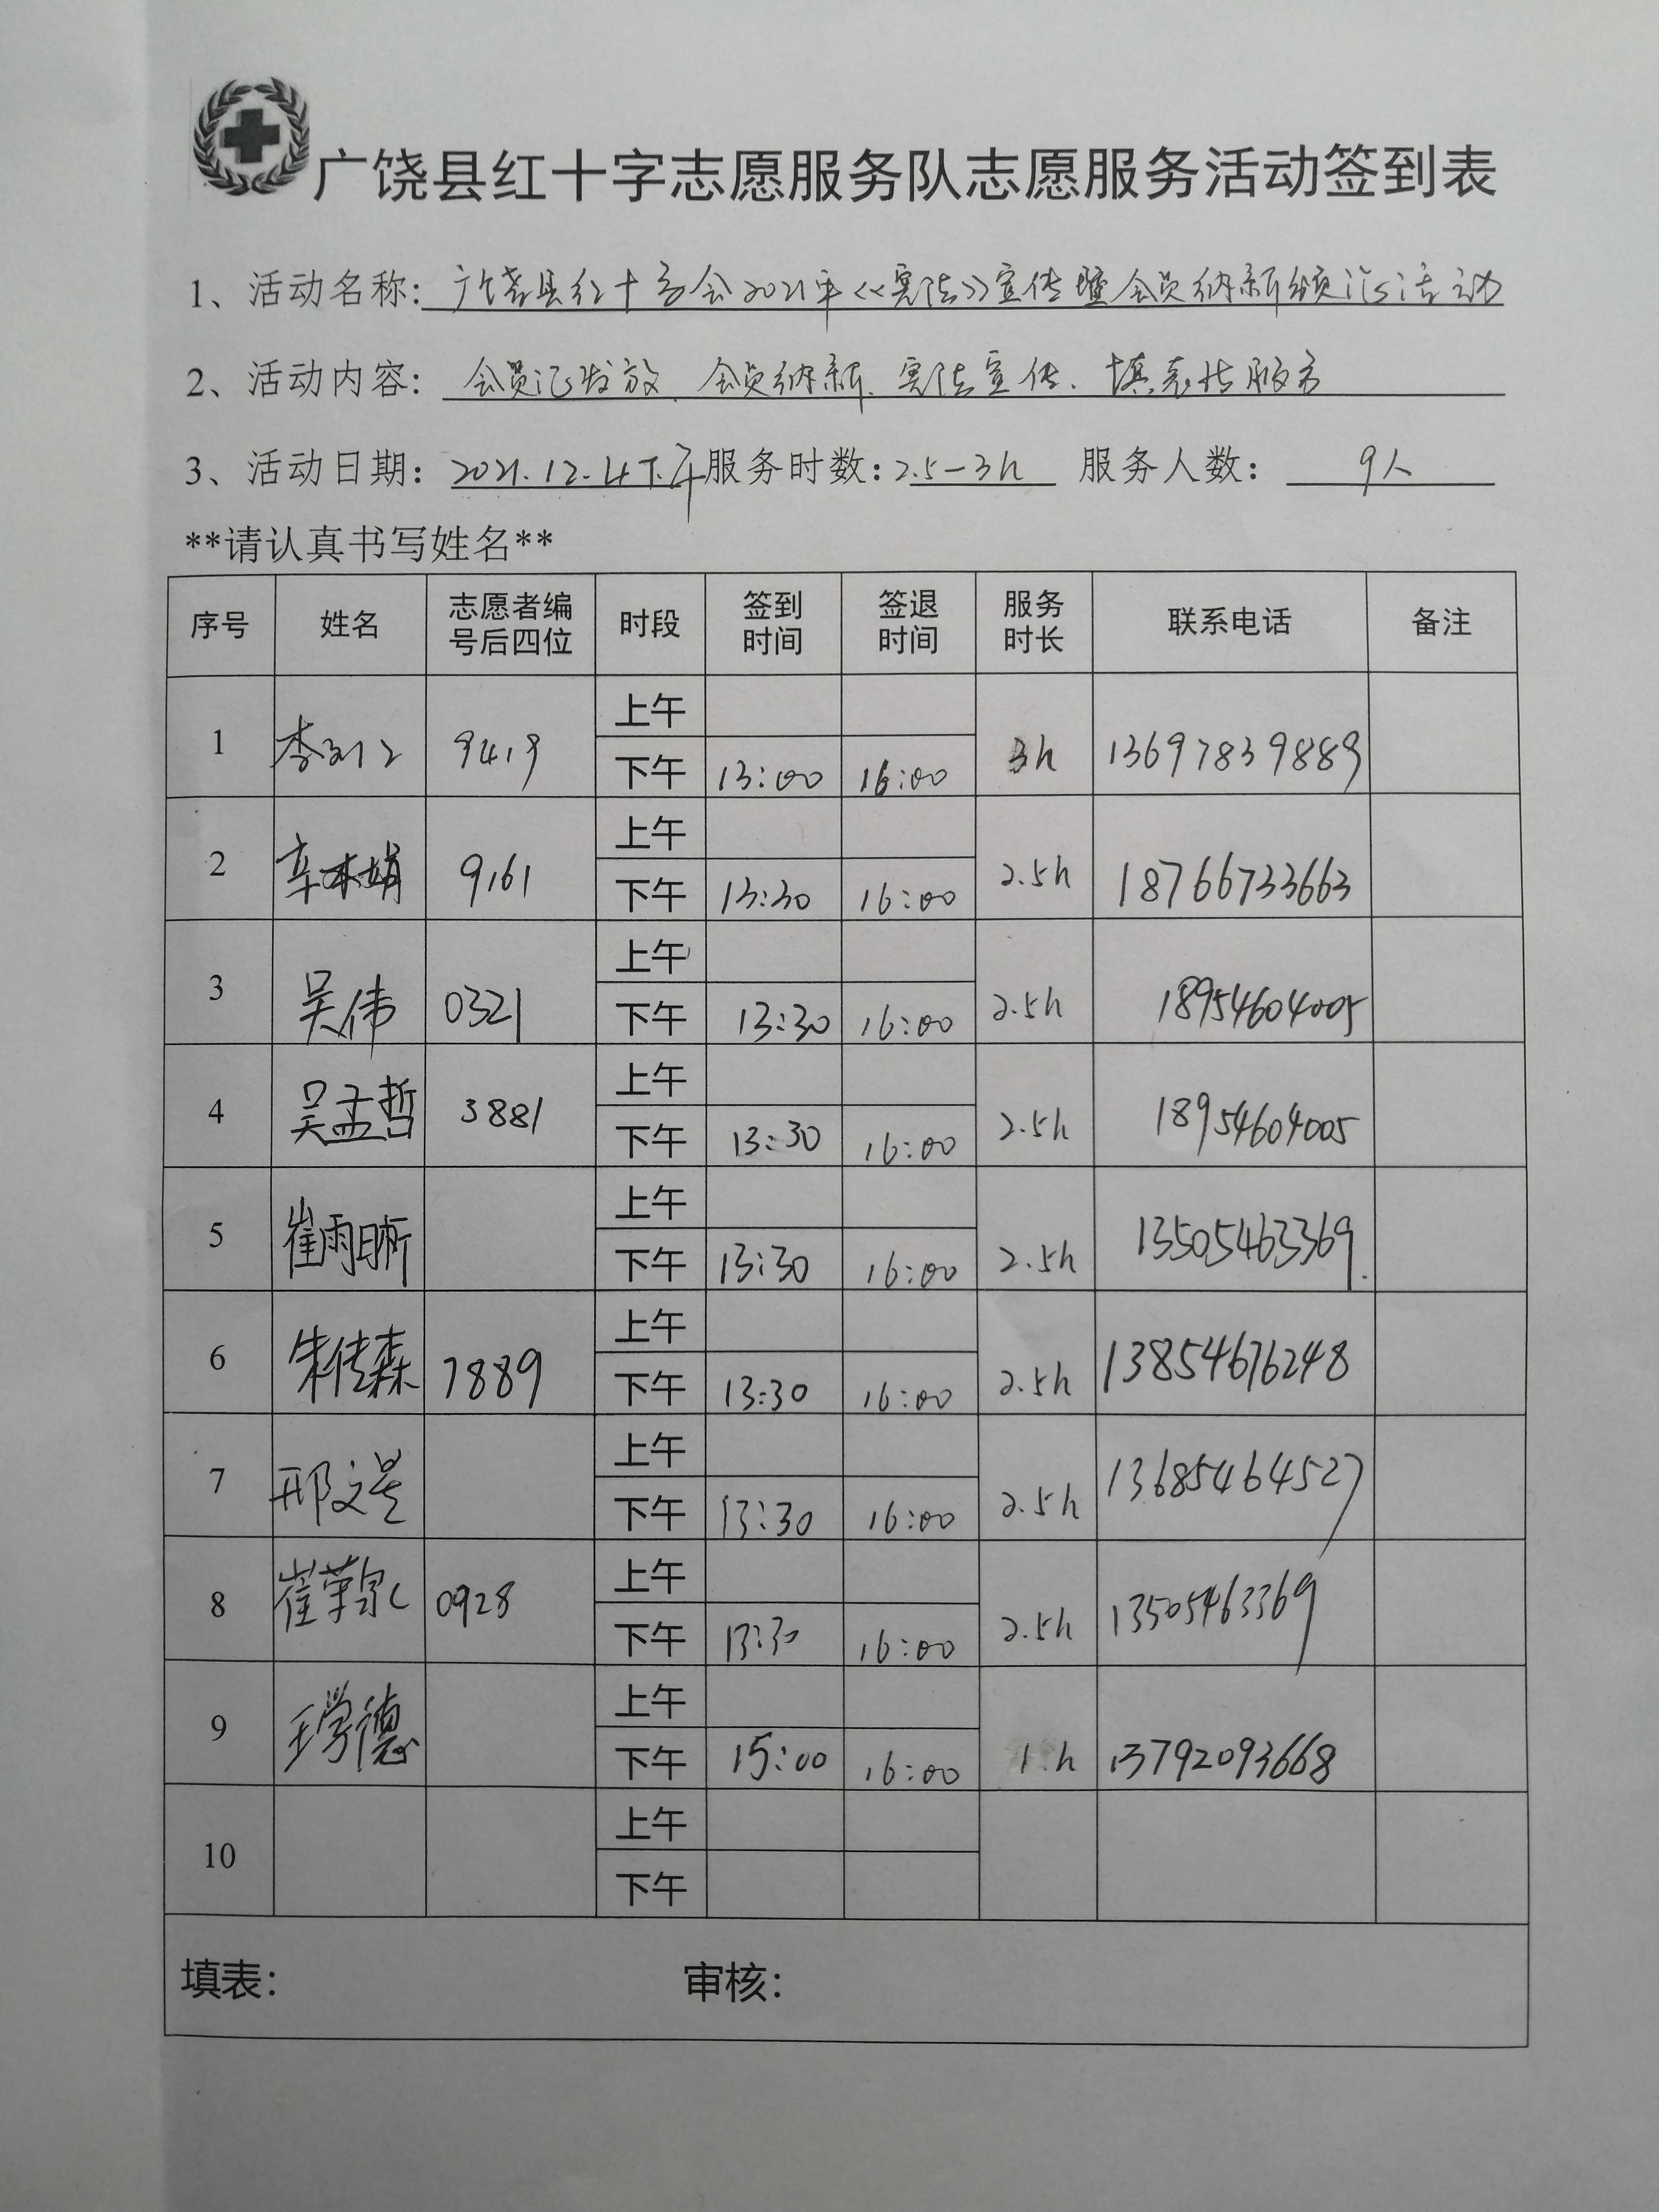 广饶县红十字志愿服务队志愿服务活动签到表
1、活动名称: 广饶县红十字会2021年《宪法》宣传暨会员纳新颁证活动
2、活动内容: 会员证发放、会员纳新、宪法宣传、填表指服务
3、活动日期: 2021.12.4下午 服务时数: 2.5—3h 服务人数: 9人
**请认真书写姓名**
序号 姓名 志愿者编号后四位 时段 签到时间 签退时间 服务时长 联系电话 备注
1 李 9419 上午
下午 13:00 16:00 3h 13697839889
2 辛 娟 9161 上午
下午 13:30 16:00 2.5h 18766733663
3 吴伟 0321 上午
下午 13:30 16:00 2.5h 18954604005
4 吴孟哲 3881 上午
下午 13:30 16:00 2.5h 18954604005
5 崔雨晰 上午
下午 13:30 16:00 2.5h 13505463369.
6 朱传森 7889 上午
下午 13:30 16:00 2.5h 13854676248
7 邢文 上午
下午 13:30 16:00 2.5h 13685464527
8 崔 0928 上午
下午 13:30 16:00 2.5h 13505463369
9 王学德 上午
下午 15:00 16:00 1h 13792093668
10 上午
下午
填表: 审核: